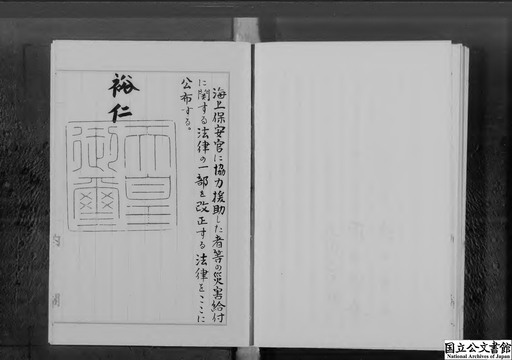 海上保安官に協力援助した者等の災害給付
に関する法律の一部を改正する法律をここに
公布する。
裕仁
天皇
御璽
国立公文書館
National Archives of Japan